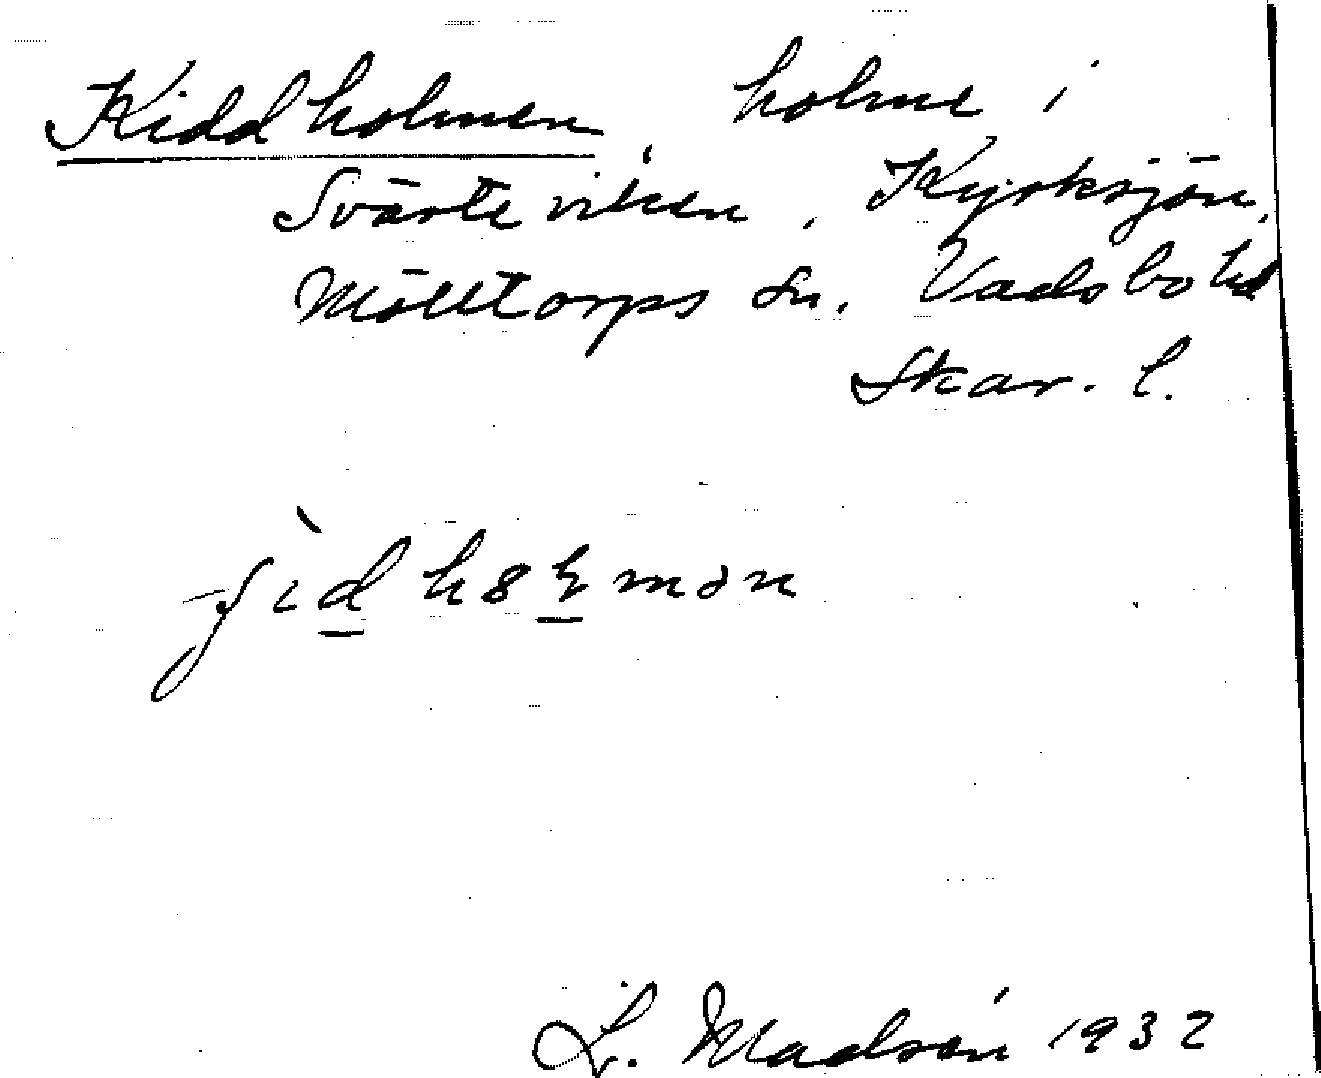 Kiddholmen, holme i
Svärteviken, Kyrksjön,
Mölltorps sn. Vadsbo hd
Skar. l.
L. Madsén 1932